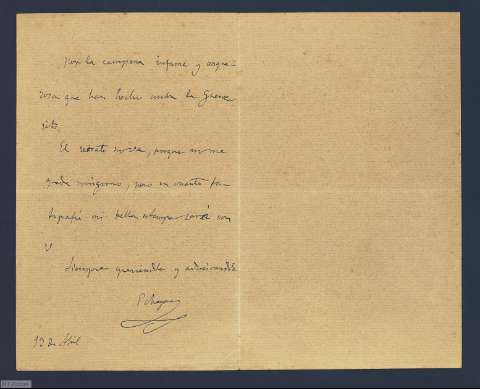 por la campaña infame y asque-
rosa que han hecho contra la Guerre
rito.
El retrato no va, porque no me
queda ninguno; pero en cuanto fo-
tografíe mi bella estampa será con
V
Siempre queriéndole y admirándole
P. Chapa
13 de Abril